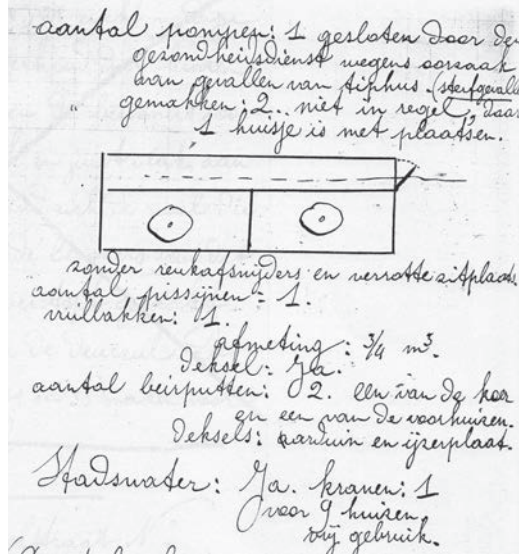 aantal pompen: 1 gesloten door de
gezondheidsdienst wegens oorzaak
van gevallen van tiphus. (sterfgevallen
" gemakken: 2... niet in regel, daar
1 huisje is met plaatsen.
zonder reukafsnijders en verrotte zitplaats.
aantal pissijnen = 1.
vuilbakken: 1.
afmeting: 3/4 m³.
Deksel: Ja.
aantal beirputten: 2. een van de koer
en een van de voorhuizen.
Deksels: arduin en ijzerplaat.
Stadswater: Ja. kranen: 1
voor 9 huizen.
vrij gebruik.